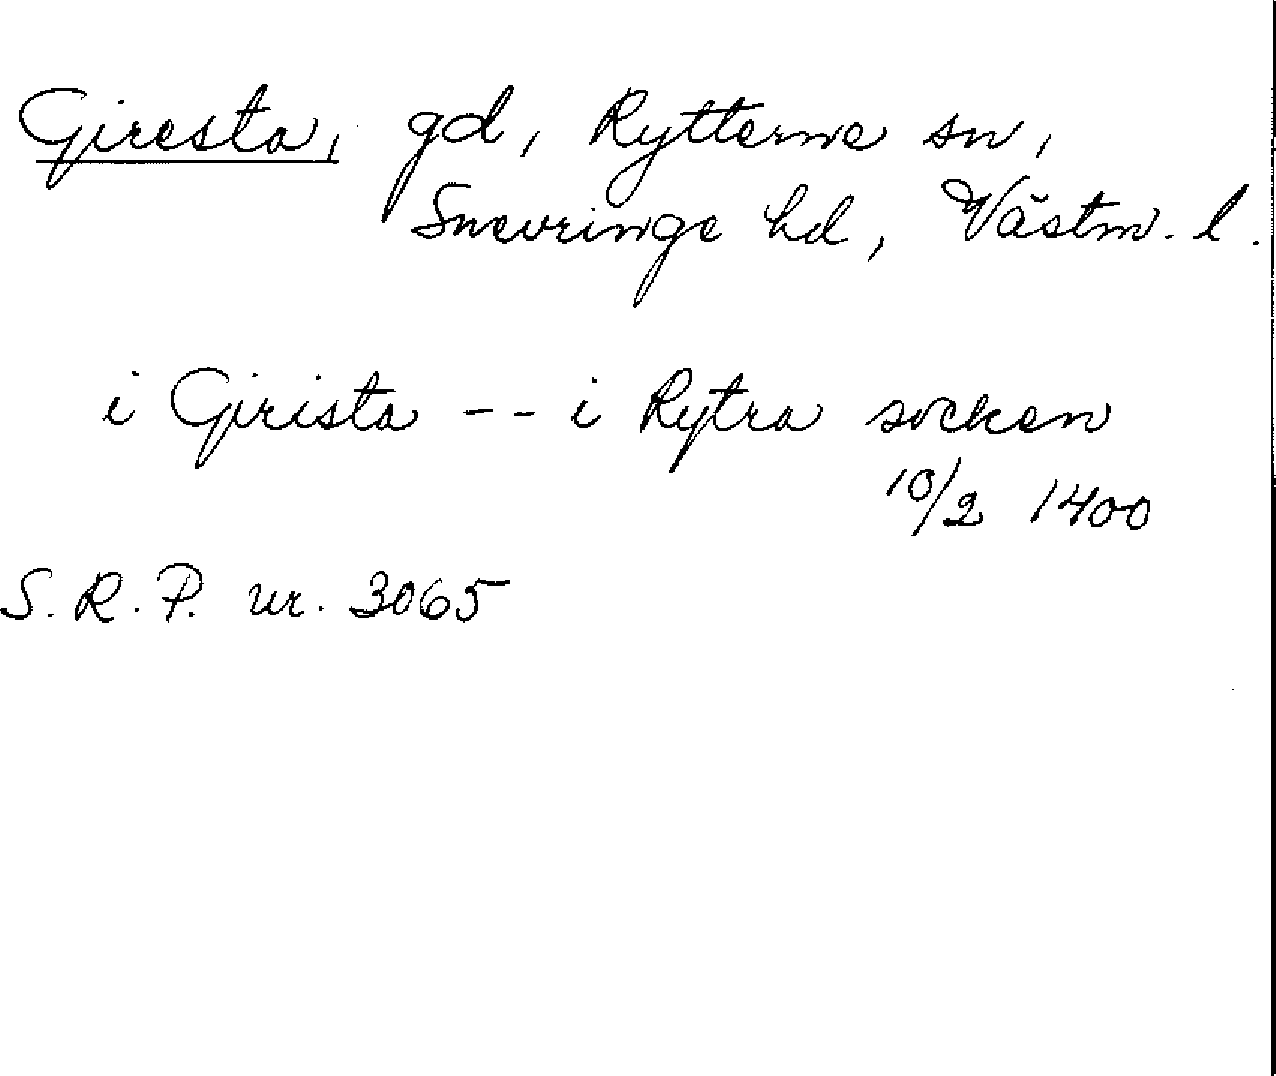 Giresta, gd, Rytterne sn,
Snevringe hd, Västm. l.
i Girista -- i Rytra socken
10/2 1400
S. R. P. nr. 3065